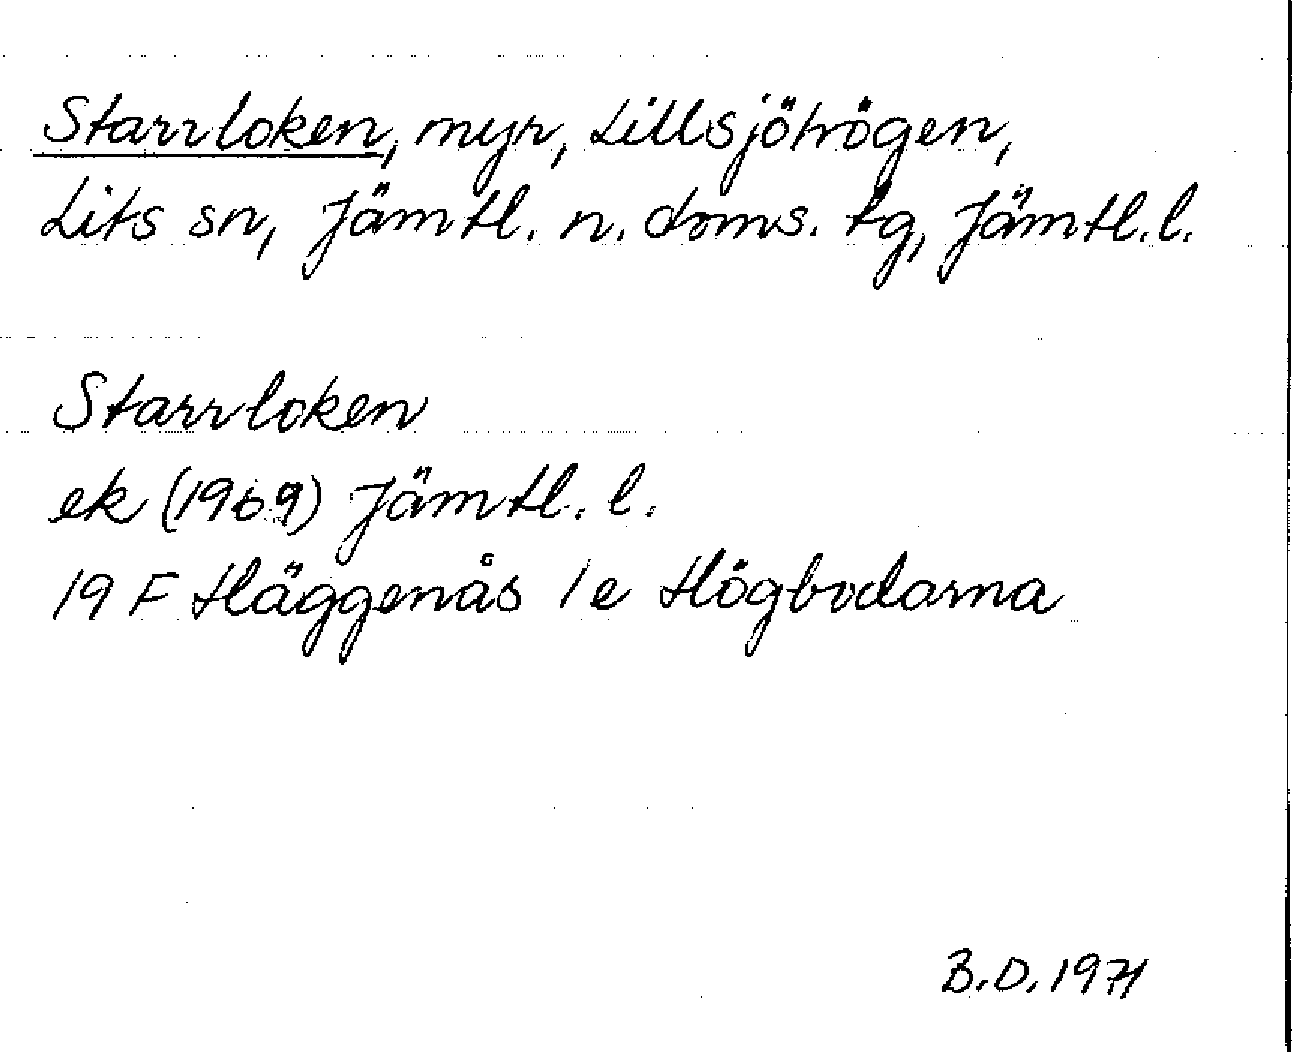 Starrloken, myr, Lillsjöhögen,
Lits sn, Jämtl. n. doms. tg, Jämtl. l.
Starrloken
ek (1969) Jämtl. l.
19 F Häggenås 1 e Högbodarna
B.D. 1971